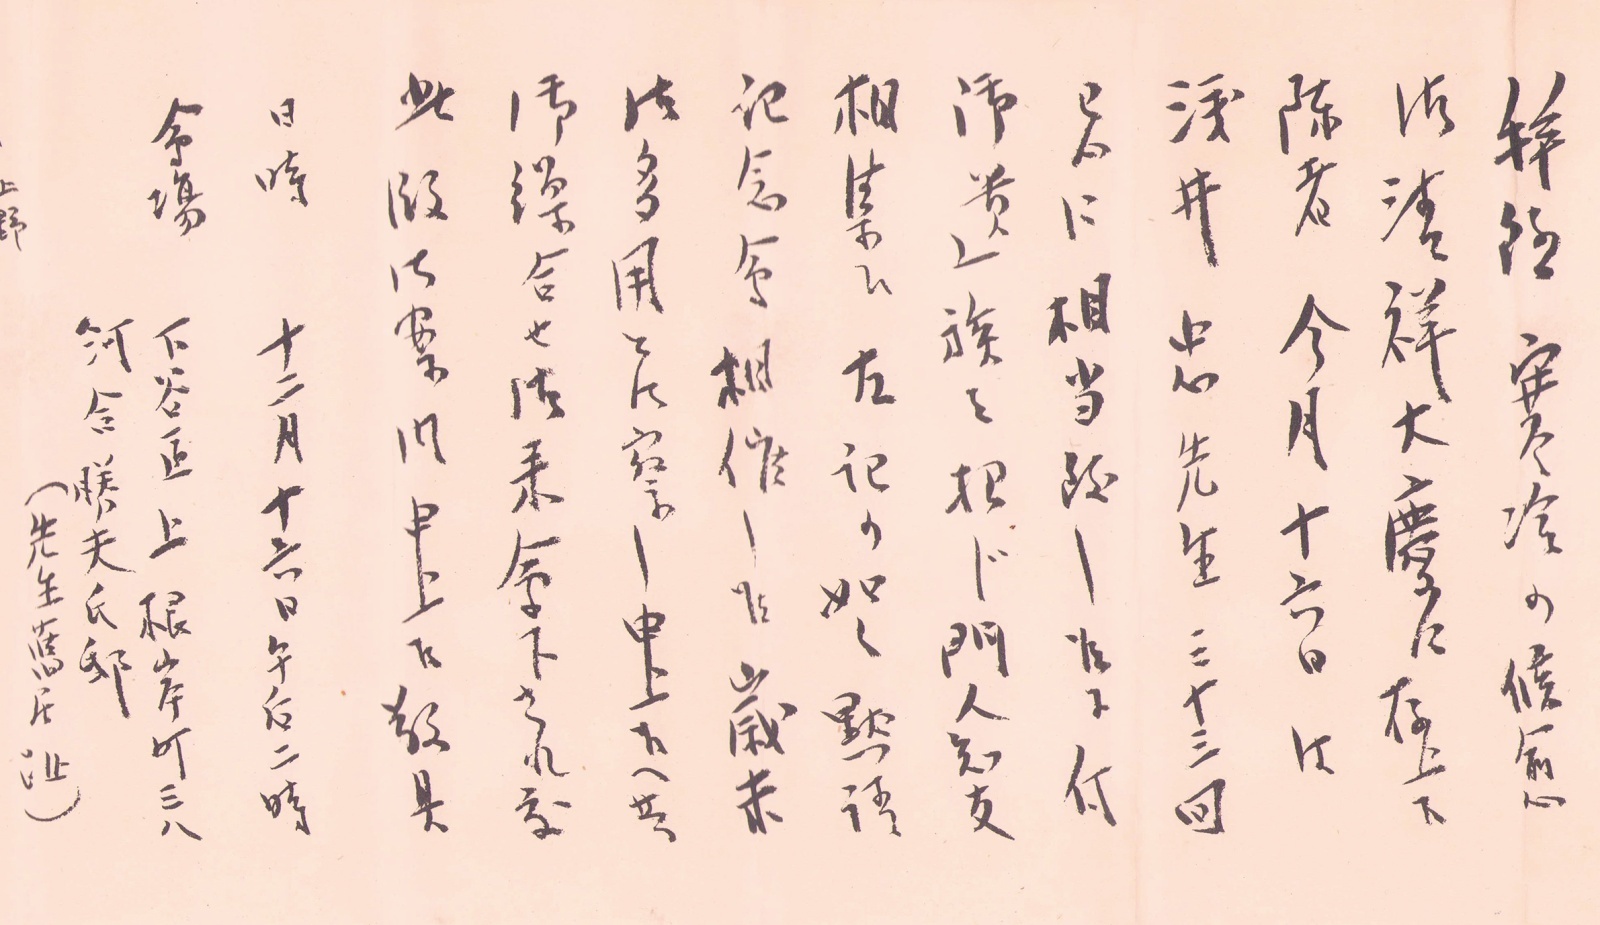 拝啓 寒冷の候愈々
御清祥大慶に存上候
陳者 今月十六日は
浅井忠先生三十三回
忌に相当致し候に付
御貴族を招じ門人知友
相集ひ左記の如く黙祷
記念会相催し候歳末
御多用とは察し申上候へ共
御繰合せ御来会下され度
此段御案内申上候 敬具
日時 十二月十六日午后二時
会場 下谷区上根岸町三八
河合勝夫氏邸
(先生旧居趾)
上野